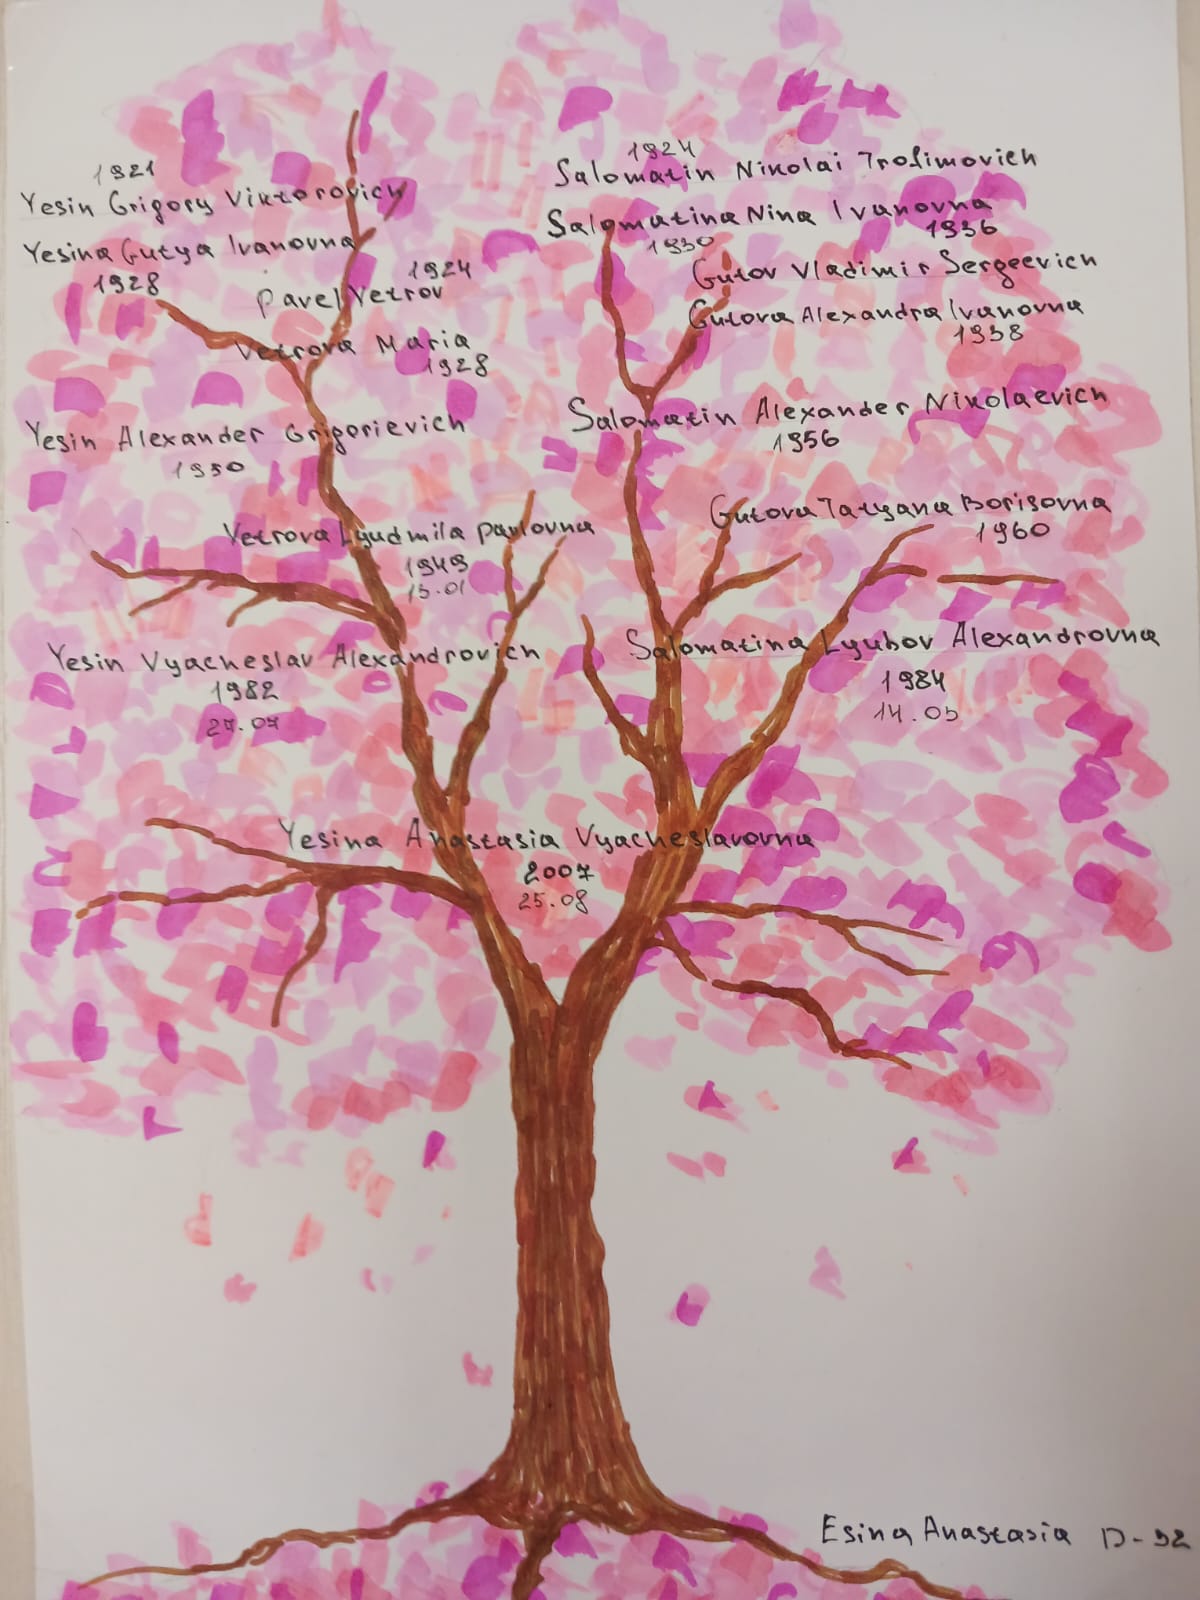 1921
Yesin Grigory Viktorovich
Yesina Gutya Ivanovna
1928
1924
Pavel Vetrov
Vetrova Maria
1928
1924
Salomatin Nikolai Trofimovich
Salomatina Nina Ivanovna
1930
1936
Gutov Vladimir Sergeevich
Gutova Alexandra Ivanovna
1938
Yesin Alexander Grigorievich
1950
Salomatin Alexander Nikolaevich
1956
Vetrova Lyudmila Pavlovna
1949
15.01
Gutova Tatyana Borisovna
1960
Yesin Vyacheslav Alexandrovich
1982
27.07
Salomatina Lyubov Alexandrovna
1984
14.05
Yesina Anastasia Vyacheslavovna
2007
25.08
Esina Anastasia D-92